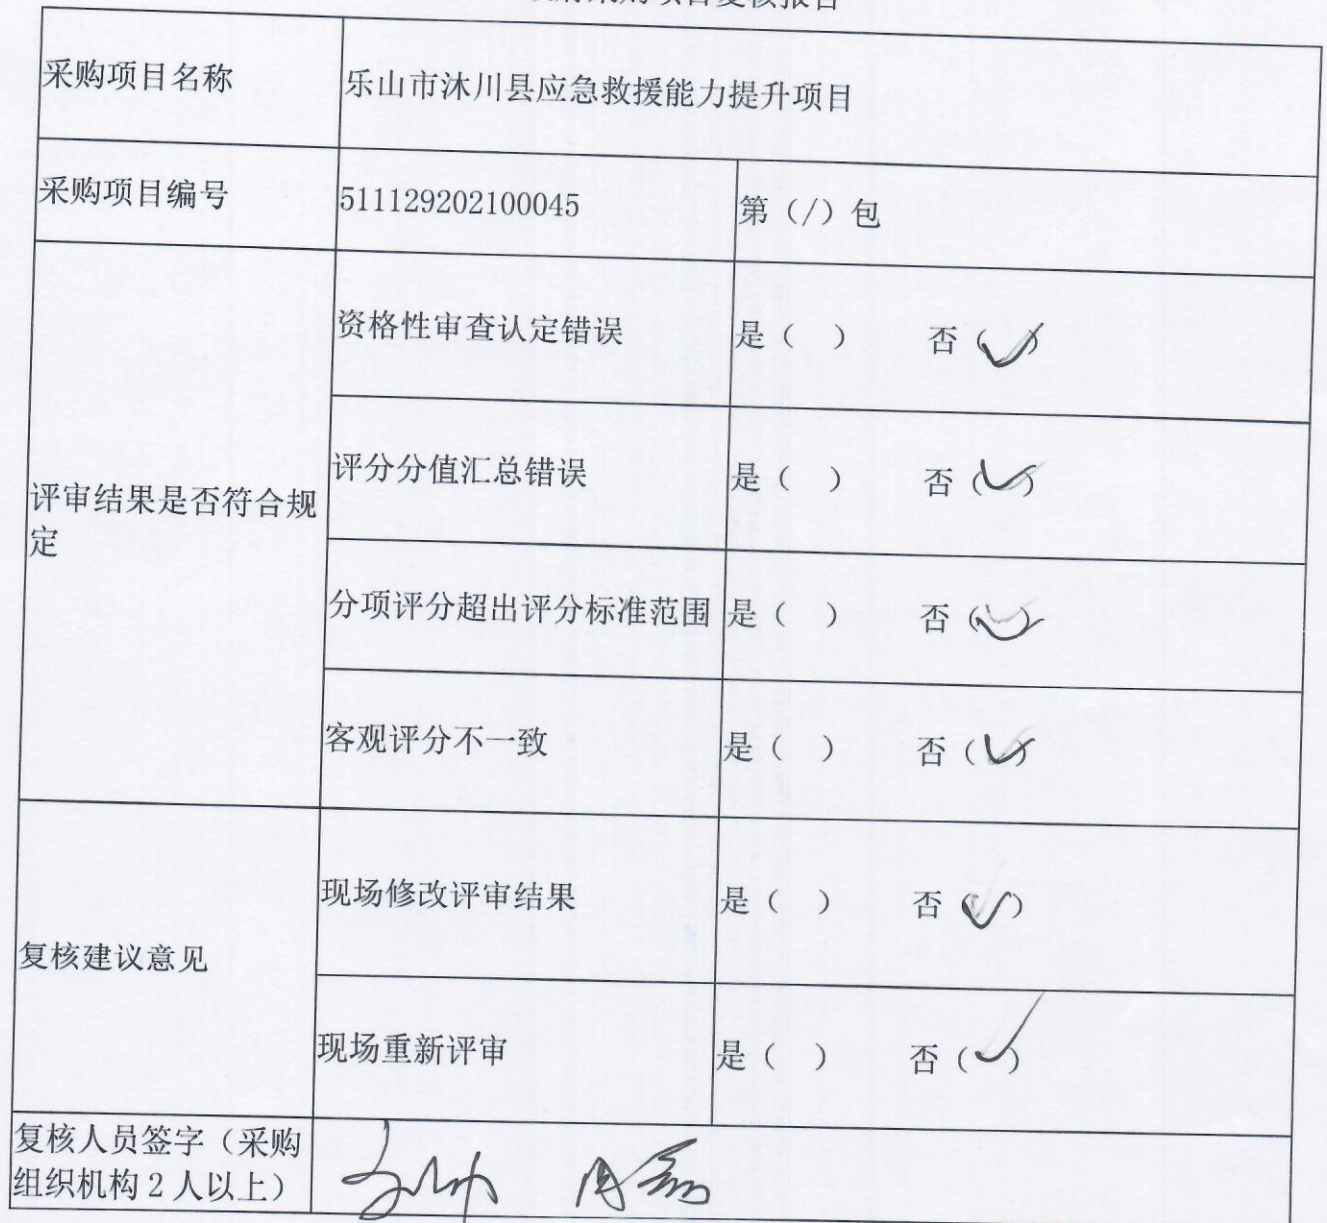 采购项目名称
乐山市沐川县应急救援能力提升项目
采购项目编号
511129202100045
第（/）包
评审结果是否符合规
定
资格性审查认定错误
是（ ） 否（✓）
评分分值汇总错误
是（ ） 否（✓）
分项评分超出评分标准范围
是（ ） 否（✓）
客观评分不一致
是（ ） 否（✓）
复核建议意见
现场修改评审结果
是（ ） 否（✓）
现场重新评审
是（ ） 否（✓）
复核人员签字（采购
组织机构2人以上）